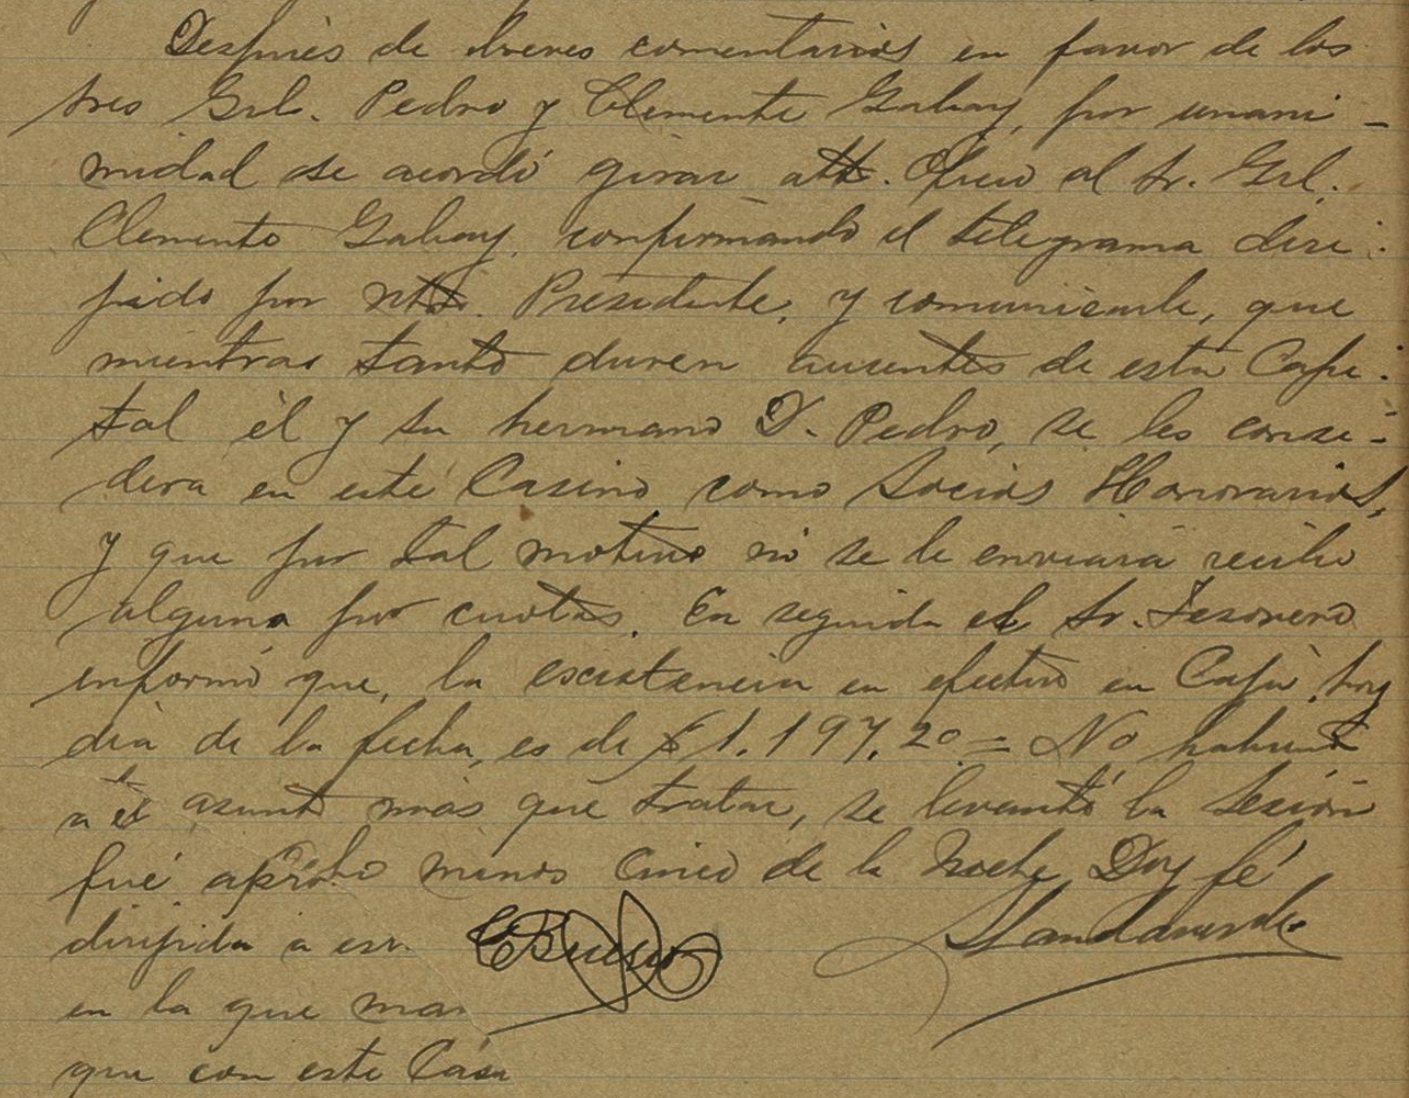 Después de breves comentarios en favor de los
tres Grl. Pedro y Clemente Gabay, por unani-
midad se acordó girar att. Oficio al Sr. Grl.
Clemente Gabay, confirmando el telegrama diri-
jido por ntro. Presidente, y comunicarle, que
mientras tanto duren ausentes de esta Capi-
tal él y su hermano D. Pedro, se les consi-
dera en este Casino como Socios Honorarios,
y que por tal motivo no se le enviará recibo
alguno por cuotas. En seguida el Sr. Tesorero
informó que, la existencia en efectivo en Caja, hoy
día de la fecha, es de $1.197.20 = No habiendo
asunto más que tratar, se levantó la Sesión
fué menos cinco de la Noche Doy fé
dirijida a
en la que
que con este